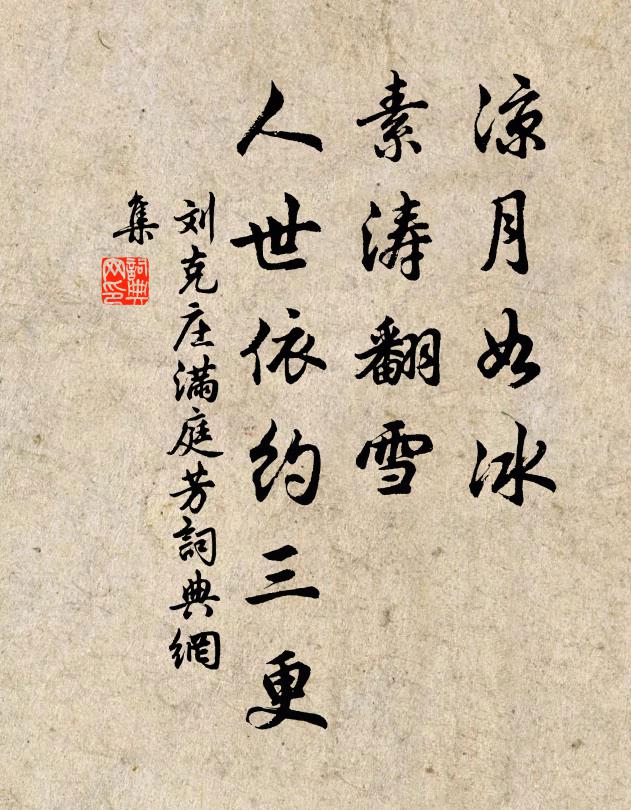 凉月如冰
素涛翻雪
人世依约三更
刘克庄满庭芳詞典網
集
詞典网印